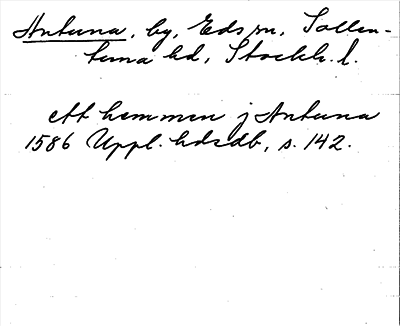 Antuna, by, Eds sn, Sollen-
tuna hd, Stockh. l.
ett hemmen j Antuna
1586 Uppl. hdsdb, s. 142.